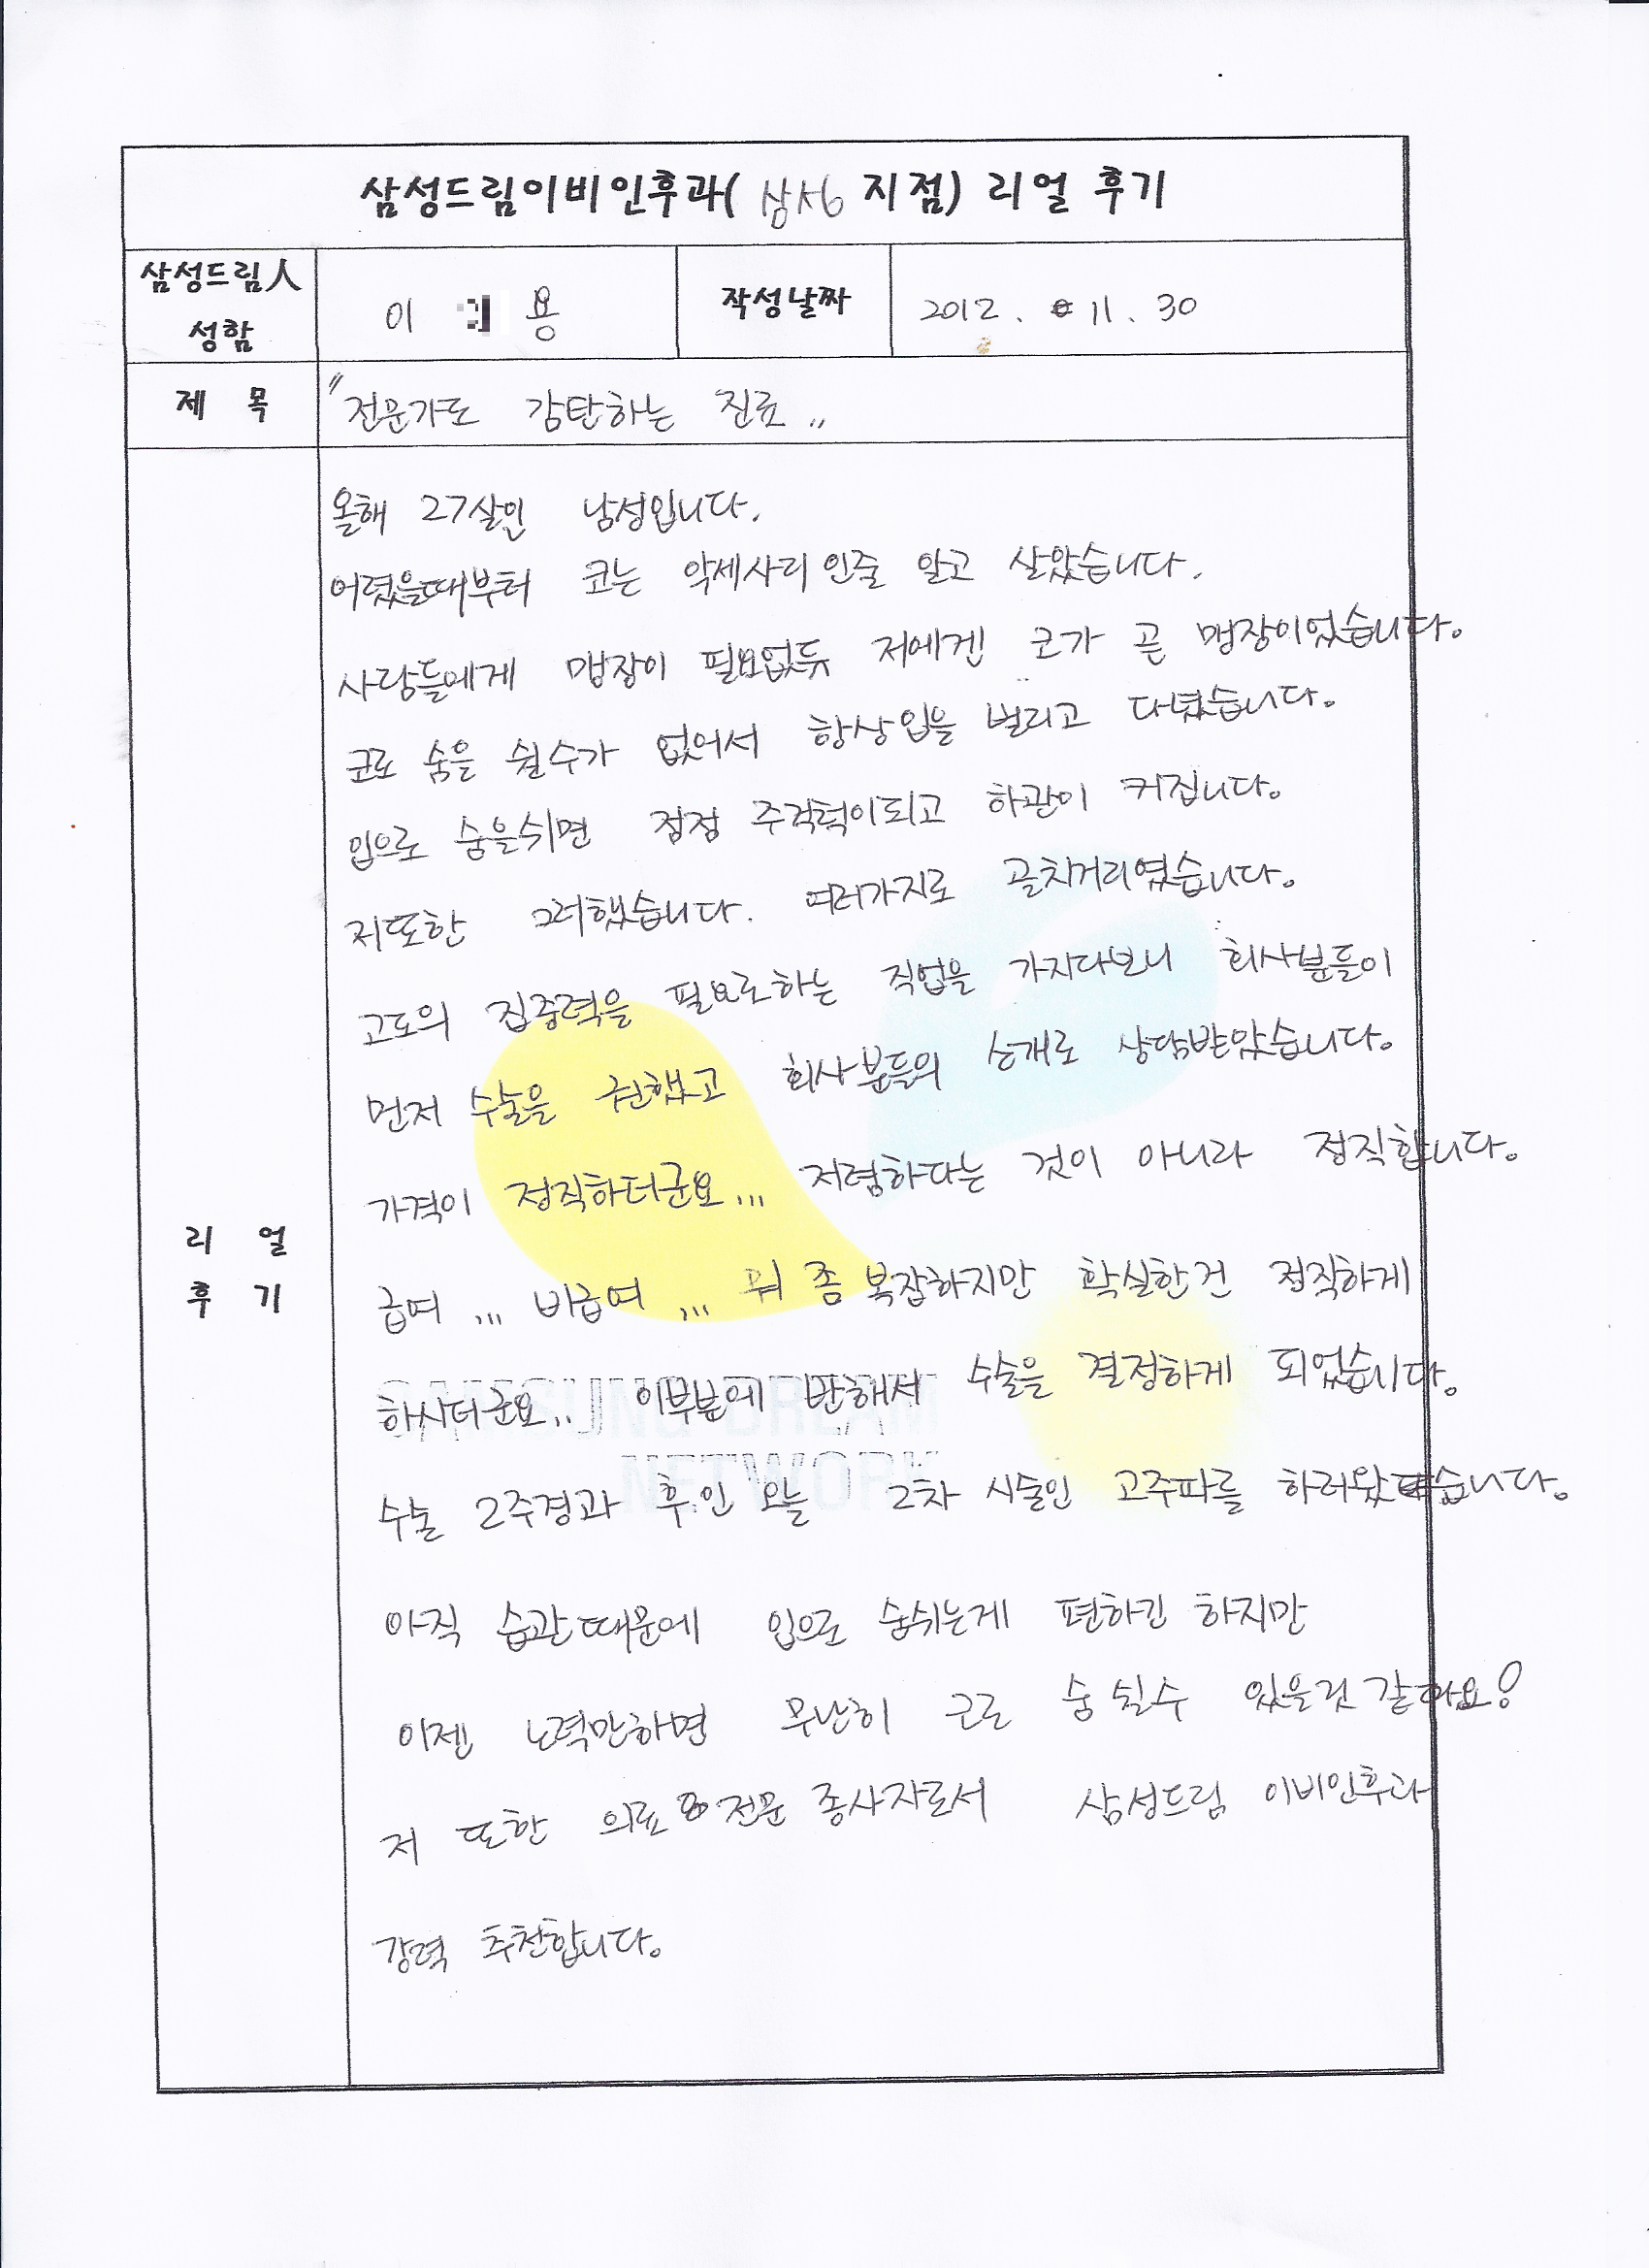 삼성드림이비인후과( 삼성 지점) 리얼 후기
삼성드림人
성함
이 용
작성날짜
2012. 11. 30
제 목
"전문가도 감탄하는 진료"
올해 27살인 남성입니다.
어렸을때부터 코는 악세사리인줄 알고 살았습니다.
사람들에게 맹장이 필요없듯 저에겐 코가 곧 맹장이었습니다.
코로 숨을 쉴수가 없어서 항상입을 벌리고 다녔습니다.
입으로 숨을쉬면 점점 주걱턱이되고 하관이 커집니다.
저또한 그러했습니다. 여러가지로 골치거리였습니다.
고도의 집중력을 필요로하는 직업을 가지다보니 회사분들이
먼저 수술을 권했고 회사분들의 소개로 상담받았습니다.
가격이 정직하더군요... 저렴하다는 것이 아니라 정직합니다.
리 얼
후 기
급여 ... 비급여 ... 뭐 좀 복잡하지만 확실한건 정직하게
하시더군요.. 이부분에 반해서 수술을 결정하게 되었습니다.
SAMSUNG DREAM
NETWORK
수술 2주경과 후인 오늘 2차 시술인 고주파를 하러왔습니다.
아직 습관때문에 입으로 숨쉬는게 편하긴 하지만
이젠 노력만하면 무난히 코로 숨 쉴수 있을것 같아요!
저 또한 의료 전문 종사자로서 삼성드림 이비인후과
강력 추천합니다.